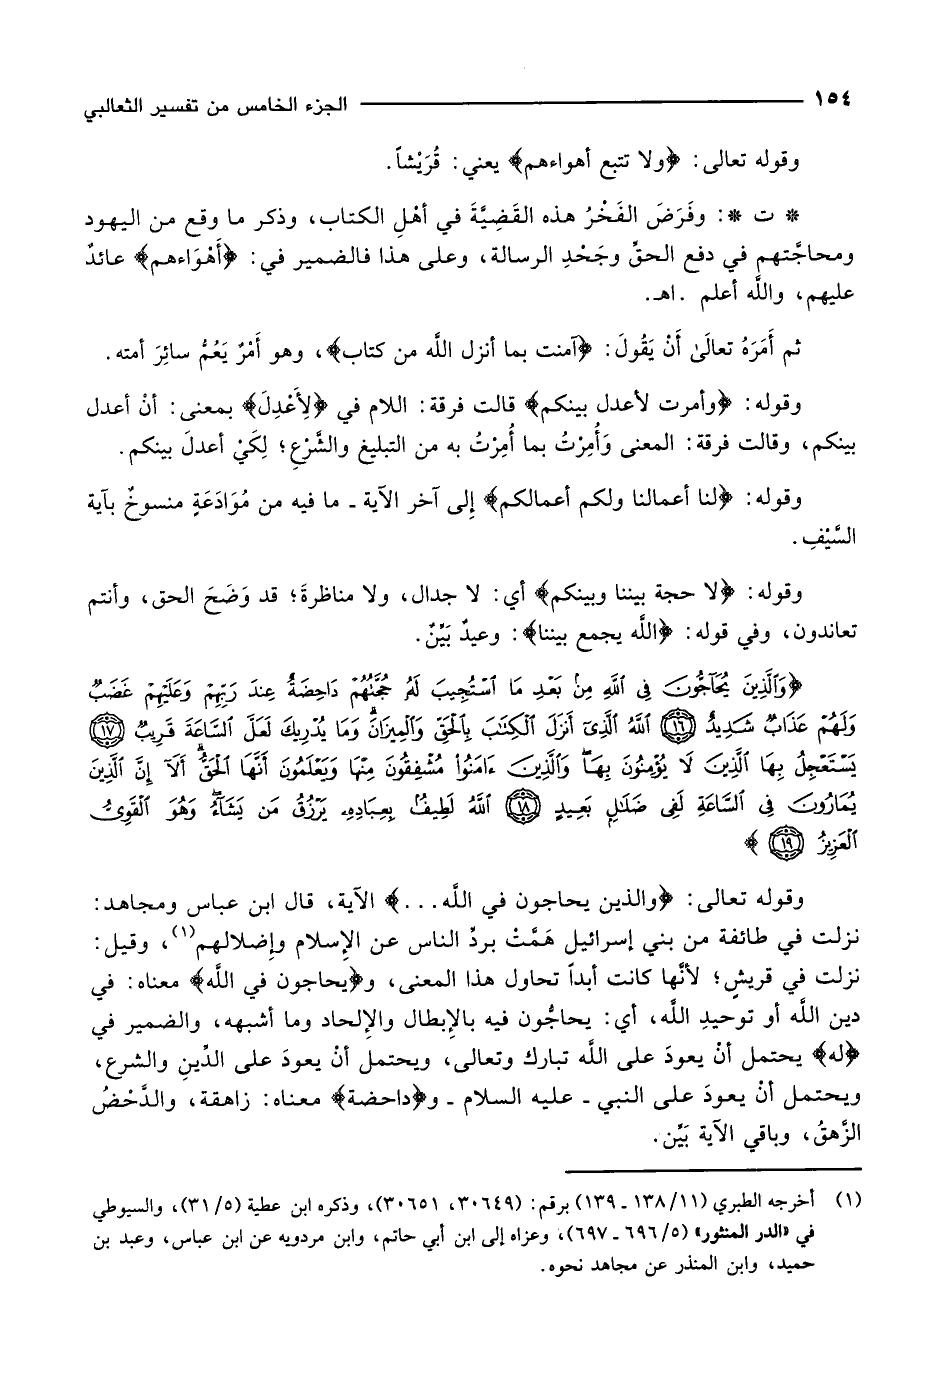 ١٥٤ ــــــــــــــــــــــــــــــــ الجزء الخامس من تفسير الثعالبي
وقوله تعالى: ﴿ولا تتبع أهواءهم﴾ يعني: قُرَيْشاً.
* ت *: وفَرَضَ الفَخْرُ هذه القَضِيَّةَ في أهْلِ الكتاب، وذكر ما وقع من اليهود
ومحاجَّتهم في دفع الحقِّ وجَحْدِ الرسالة، وعلى هذا فالضمير في: ﴿أَهْوَاءهم﴾ عائدٌ
عليهم، واللَّه أعلم .اهـ.
ثم أَمَرَهُ تعالَىٰ أَنْ يَقُولَ: ﴿آمنت بما أنزل اللَّه من كتاب﴾، وهو أَمْرٌ يَعُمُّ سائِرَ أمته.
وقوله: ﴿وأمرت لأعدل بينكم﴾ قالت فرقة: اللام في ﴿لِأَعْدِلَ﴾ بمعنى: أنْ أعدل
بينكم، وقالت فرقة: المعنى وَأُمِرْتُ بما أُمِرْتُ به من التبليغ والشَّرْعِ؛ لِكَيْ أعدلَ بينكم.
وقوله: ﴿لنا أعمالنا ولكم أعمالكم﴾ إِلى آخر الآية ـ ما فيه من مُوَادَعَةٍ منسوخٌ بآية
السَّيْفِ.
وقوله: ﴿لا حجة بيننا وبينكم﴾ أي: لا جدال، ولا مناظرةَ؛ قد وَضَحَ الحق، وأنتم
تعاندون، وفي قوله: ﴿اللَّه يجمع بيننا﴾: وعيدٌ بَيِّنٌ.
﴿وَالَّذِينَ يُحَآجُّونَ فِي اللَّهِ مِنۢ بَعْدِ مَا اسْتُجِيبَ لَهُ حُجَّتُهُمْ دَاحِضَةٌ عِندَ رَبِّهِمْ وَعَلَيْهِمْ غَضَبٌ
وَلَهُمْ عَذَابٌ شَدِيدٌ ﴿١٦﴾ اللَّهُ الَّذِىٓ أَنزَلَ الْكِتَٰبَ بِالْحَقِّ وَالْمِيزَانَۗ وَمَا يُدْرِيكَ لَعَلَّ السَّاعَةَ قَرِيبٌ ﴿١٧﴾
يَسْتَعْجِلُ بِهَا الَّذِينَ لَا يُؤْمِنُونَ بِهَاۖ وَالَّذِينَ ءَامَنُوا مُشْفِقُونَ مِنْهَا وَيَعْلَمُونَ أَنَّهَا الْحَقُّۗ أَلَآ إِنَّ الَّذِينَ
يُمَارُونَ فِي السَّاعَةِ لَفِي ضَلَٰلٍۭ بَعِيدٍ ﴿١٨﴾ اللَّهُ لَطِيفٌۢ بِعِبَادِهِۦ يَرْزُقُ مَن يَشَآءُۖ وَهُوَ الْقَوِىُّ
الْعَزِيزُ ﴿١٩﴾ ﴾
وقوله تعالى: ﴿والذين يحاجون في اللَّه...﴾ الآية، قال ابن عباس ومجاهد:
نزلت في طائفة من بني إسرائيل هَمَّتْ بردِّ الناس عن الإِسلام وإِضلالهم(١)، وقيل:
نزلت في قريشٍ؛ لأنَّها كانت أبداً تحاول هذا المعنى، و﴿يحاجون في اللَّه﴾ معناه: في
دين اللَّه أو توحيدِ اللَّه، أي: يحاجُّون فيه بالإِبطال والإِلحاد وما أشبهه، والضمير في
﴿له﴾ يحتمل أنْ يعودَ على اللَّه تبارك وتعالى، ويحتمل أنْ يعودَ على الدِّينِ والشرع،
ويحتمل أنْ يعودَ على النبي ـ عليه السلام ـ و﴿داحضة﴾ معناه: زاهقة، والدَّحْضُ
الزَّهقُ، وباقي الآية بَيِّن.
(١) أخرجه الطبري (١١/ ١٣٨ ـ ١٣٩) برقم: (٣٠٦٤٩، ٣٠٦٥١)، وذكره ابن عطية (٥/ ٣١)، والسيوطي
في «الدر المنثور» (٥/ ٦٩٦ ـ ٦٩٧)، وعزاه إلى ابن أبي حاتم، وابن مردويه عن ابن عباس، وعبد بن
حميد، وابن المنذر عن مجاهد نحوه.